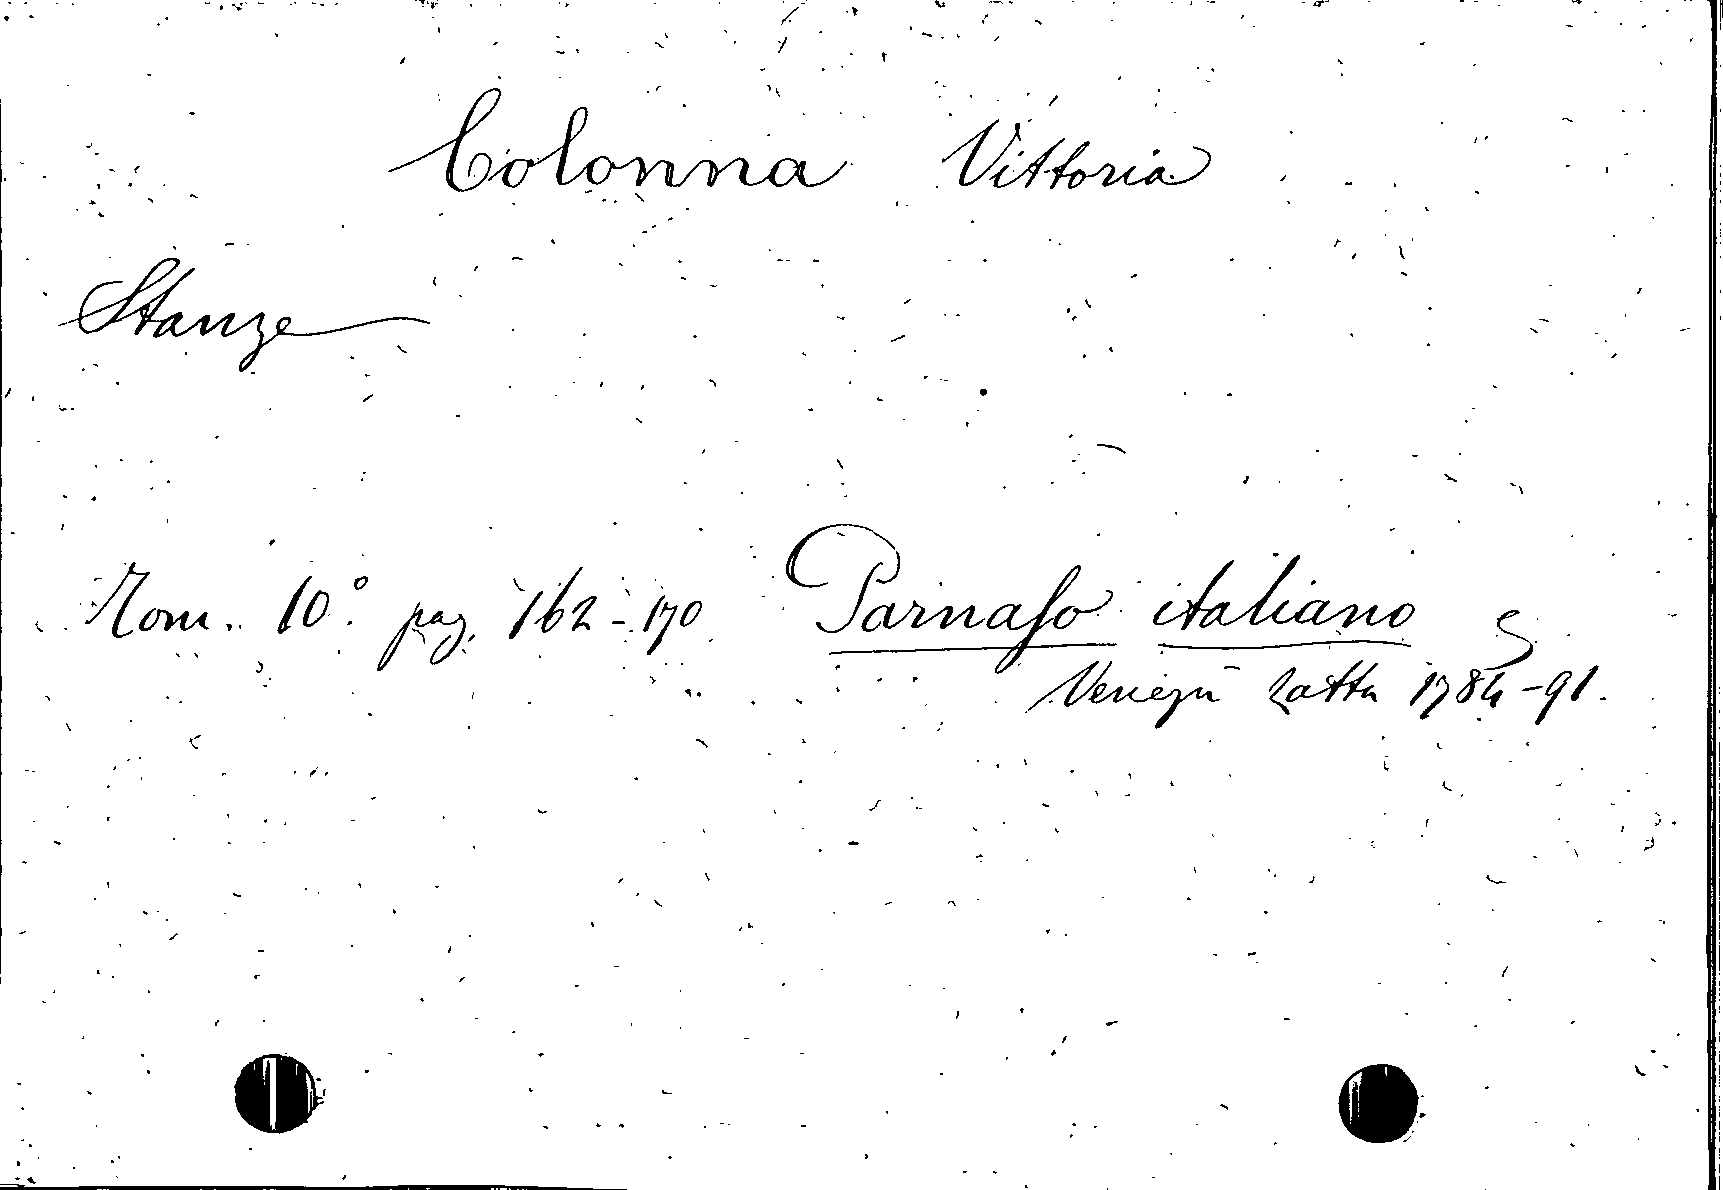 Colonna Vittoria
Stanze
Tom. 10.° pag. 162-170 Parnaso italiano
Venezia Zatta 1784-91.